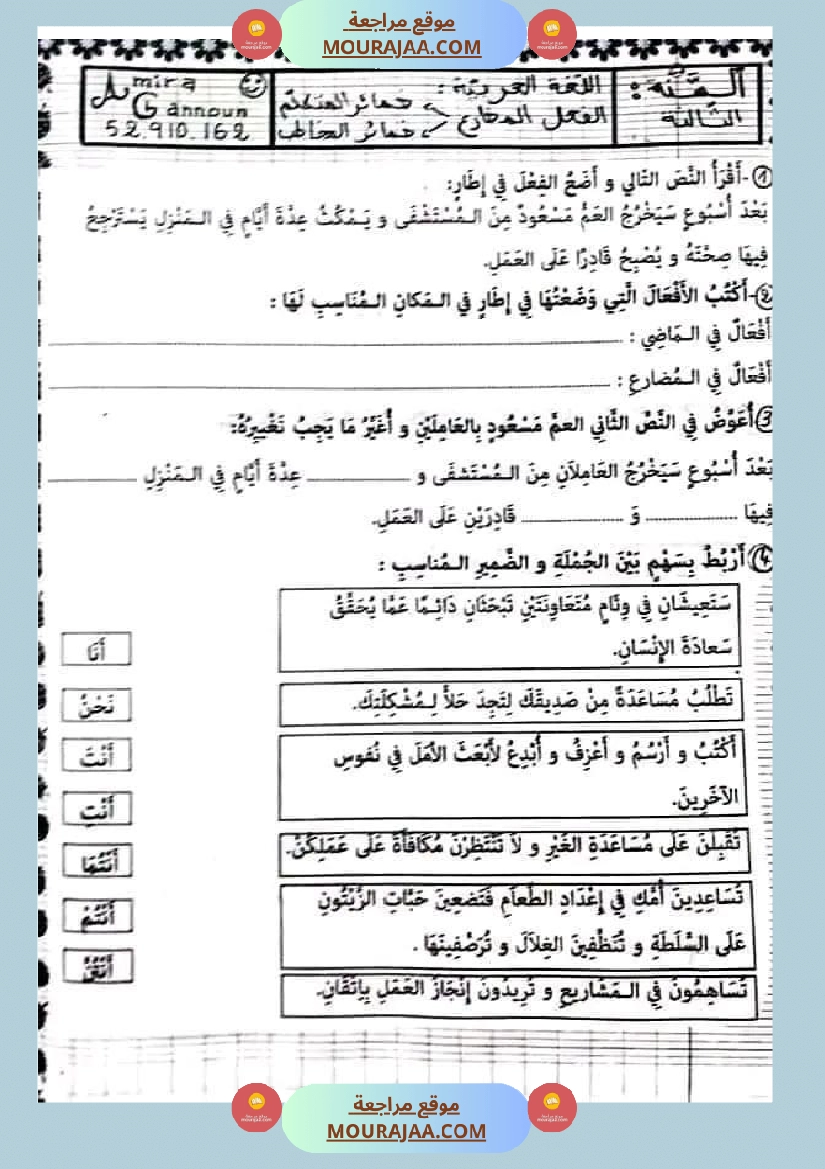 موقع مراجعة
MOURAJAA.COM
السنة الثالثة
اللغة العربية :
الفعل المضارع
ضمائر المتكلم
ضمائر المخاطب
Amira
Gannoun
52.910.162
1-أَقْرَأُ النَّصَ التَالِي و أَضَعُ الفِعْلَ فِي إِطَارٍ:
بَعْدَ أُسْبُوعٍ سَيَخْرُجُ العَمُّ مَسْعُودٌ مِنَ الـمُسْتَشْفَى و يَـمْكُثُ عِدْةَ أَيَّامٍ فِي الـمَنْزِلِ يَسْتَرْجِعُ
فِيهَا صِحْتَهُ و يُصْبِحُ قَادِرًا عَلَى العَمَلِ.
2-أَكْتُبُ الأَفْعَالَ الَّتِي وَضَعْتُهَا فِي إِطَارٍ فِي الـمَكانِ الـمُنَاسِبِ لَهَا :
أَفْعَالٌ فِي الـمَاضِي :
أَفْعَالٌ فِي الـمُضارعِ :
3 أُعَوْضُ فِي النَّصِّ الثَّانِي العمَّ مَسْعُودٍ بِالعَامِلَيْنِ و أُغَيْرُ مَا يَجِبُ تَغْيِيرُهُ:
بَعْدَ أُسْبُوعٍ سَيَخْرُجُ العَامِلاَنِ مِنَ الـمُسْتَشفَى و عِدْةَ أَيَّامٍ فِي الـمَنْزِلِ
فِيهَا وَ قَادِرَيْنِ عَلَى العَمَلِ.
4 أَرْبُطُ بِسَهْمٍ بَيْنَ الجُمْلَةِ و الضَّمِيرِ الـمُناسِبِ :
سَتَعِيشَانِ فِي وِئَامٍ مُتَعَاوِنَتَيْنِ تَبْحَثَانِ دَائِـمًا عَمَّا يُحَقِّقُ
سَعادَةَ الإِنْسَانِ.
أَنَا
تَطْلُبُ مُسَاعَدَةً مِنْ صَدِيقَكَ لِتَجِدَ حَلاًّ لِـمُشْكِلَتِكَ.
نَحْنُ
أَكْتُبُ و أَرْسُمُ و أَعْزِفُ و أُبْدِعُ لأَبْعَثَ الأَمَلَ فِي نُفوسِ
الآخَرِينَ.
أَنْتَ
أَنْتِ
تُقْبِلْنَ عَلَى مُسَاعَدَةِ الغَيْرِ و لاَ تَنْتَظِرْنَ مُكَافَأَةً عَلَى عَمَلِكُنَّ.
أَنْتُمَا
تُسَاعِدِينَ أُمَّكِ فِي إِعْدَادِ الطَّعاَمِ فَتَضعِينَ حَبَّاتِ الزَّيْتُونِ
عَلَى السَّلَطَةِ و تُنَظِّفِينَ الغِلاَلَ و تُرَصِّفِينَهَا .
أَنْتُمْ
أَنْتُنَّ
تُسَاهِمُونَ فِي الـمَشَارِيعِ و تُرِيدُونَ إِنْجَازَ العَمَلِ بِإِتْقَانٍ.
موقع مراجعة
MOURAJAA.COM